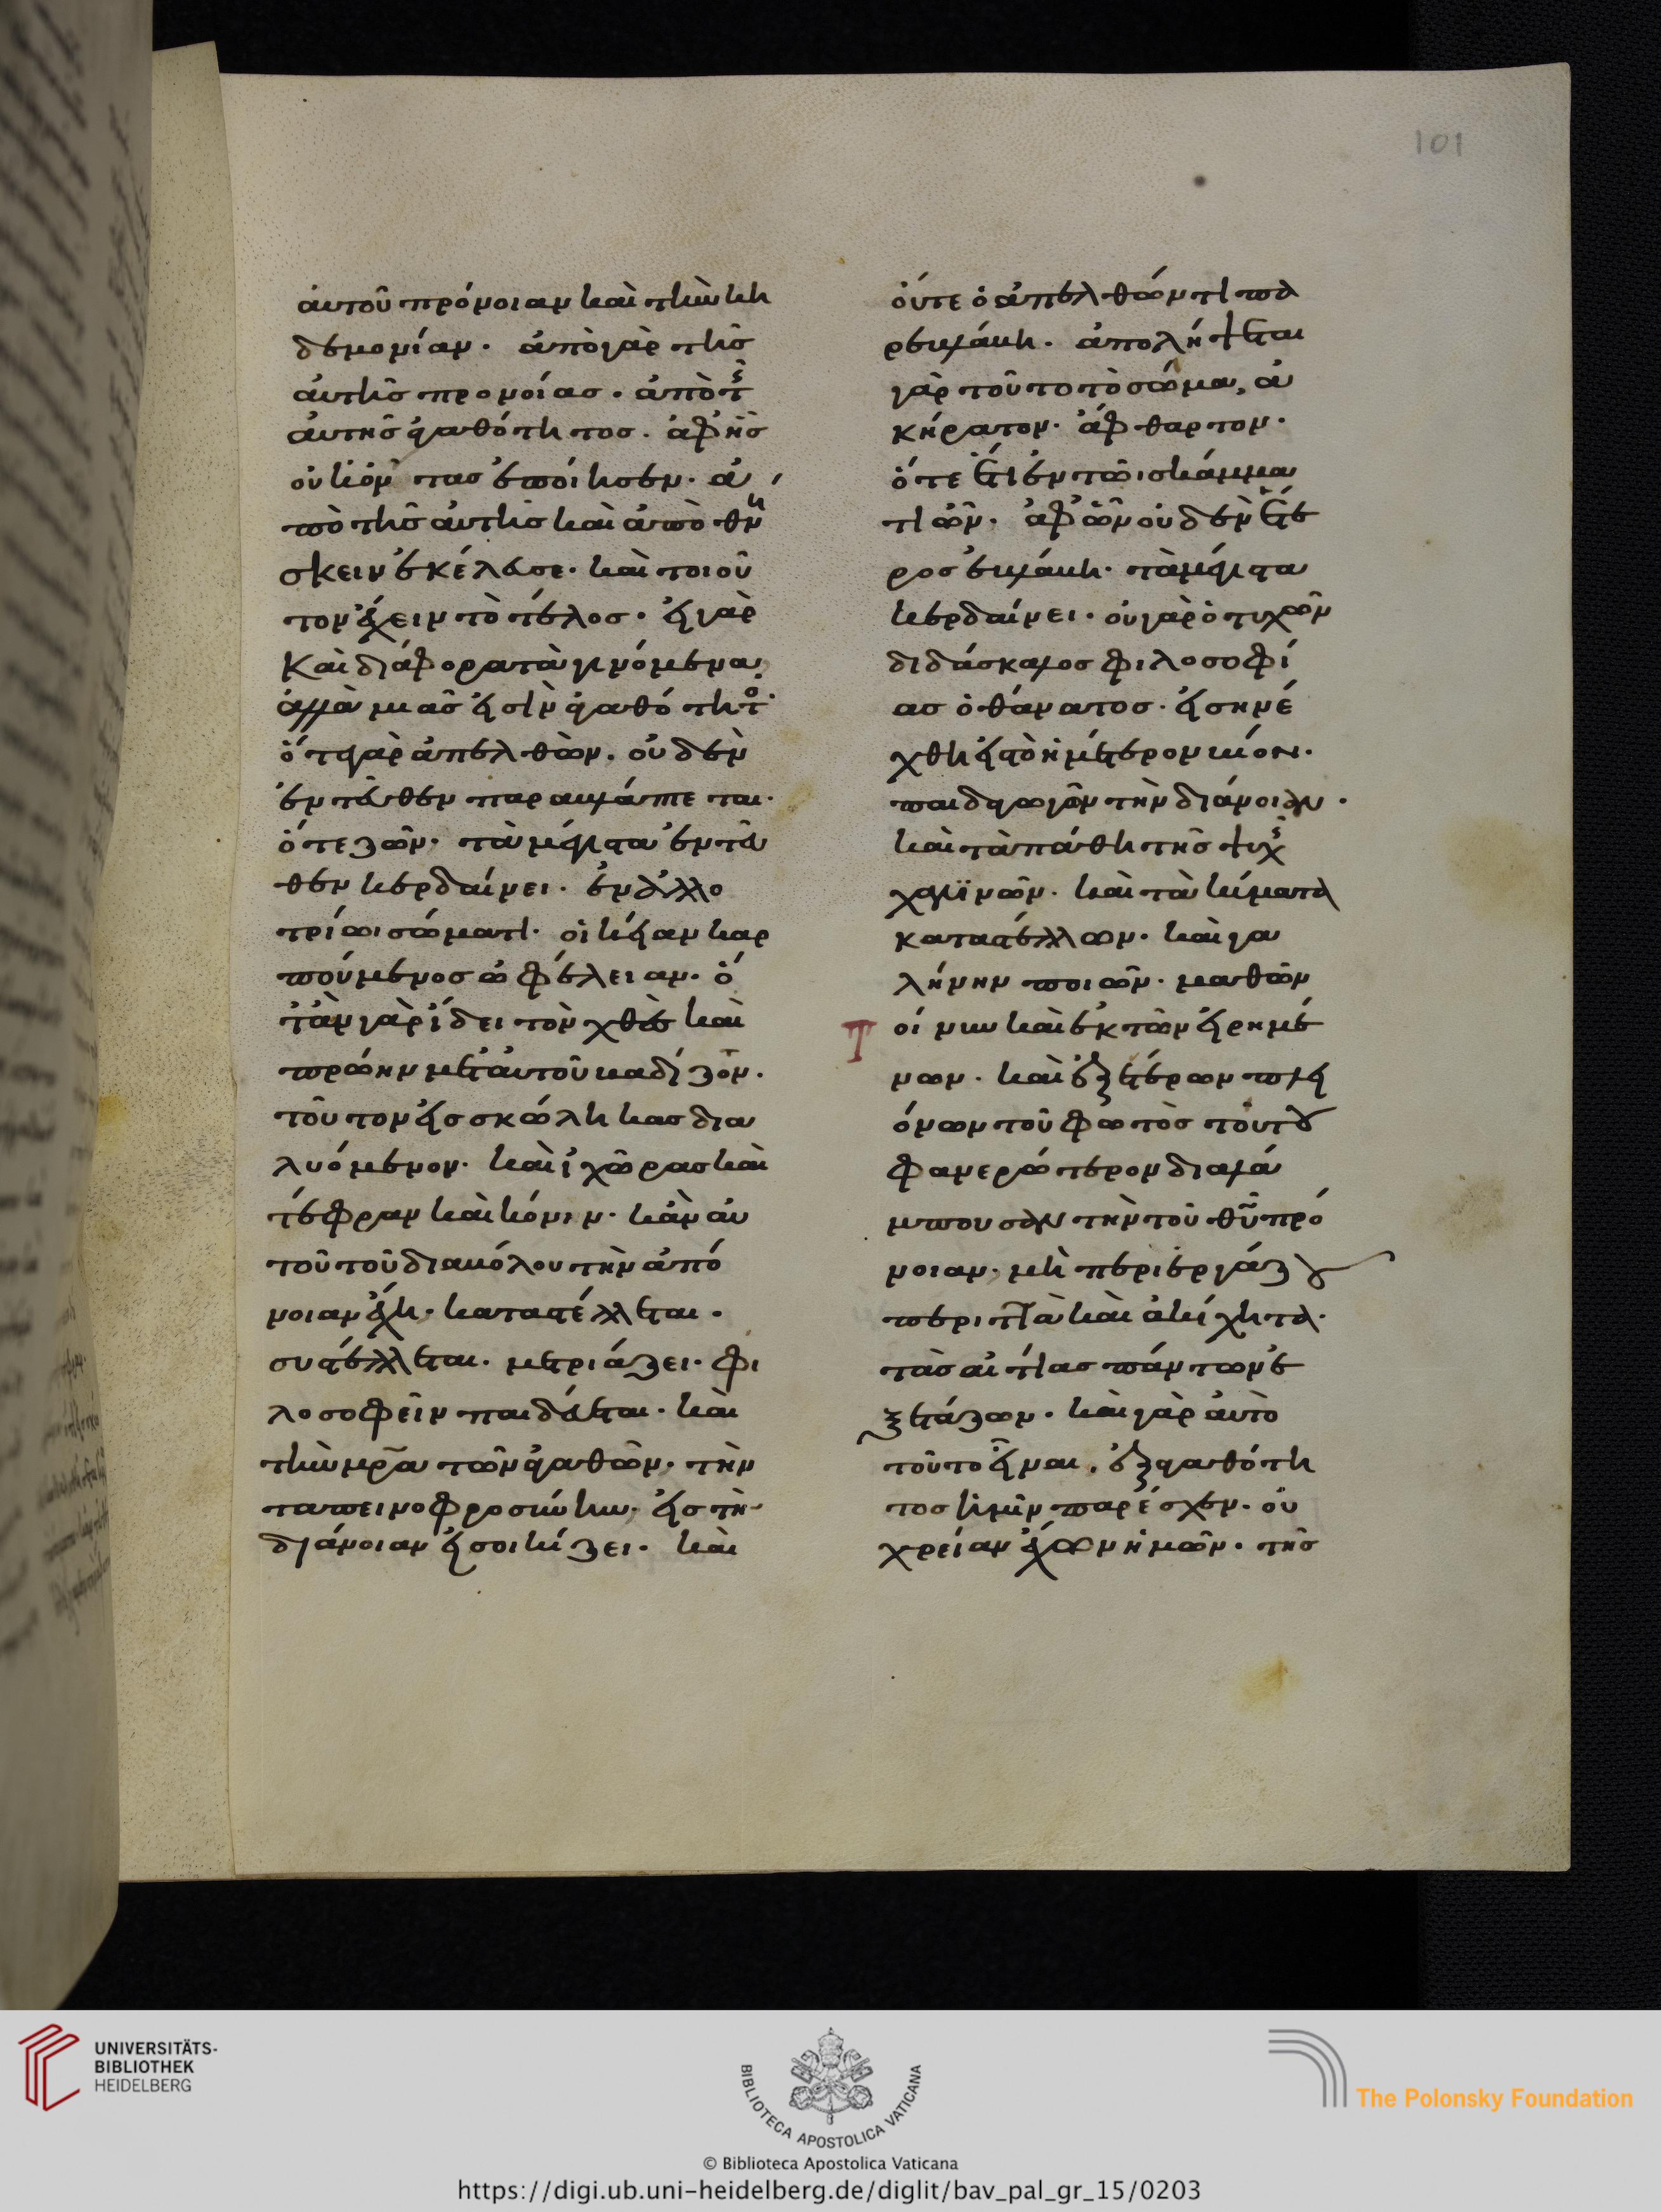 101
ἀυτοῦ πρόνοιαν καὶ τὴν κη
δεμονίαν· ἀπὸ γὰρ τῆς
ἀυτῆς προνοίας· ἀπὸ τῆς
ἀυτῆς ἀγαθότητος· ἀφ ἧς
οὐκ ὄντας ἐποίησεν· ἀ
πὸ τῆς ἀυτῆς καὶ ἀποθνή
σκειν ἐκέλευσε· καὶ τοιοῦ
τον ἔχειν τὸ τέλος· εἰ γὰρ
καὶ διάφορα τὰ γινόμενα,
ἀλλὰ μιᾶς ἐστὶν ἀγαθότητος·
ὅτε γὰρ ἀπελθὼν, οὐδὲν
ἐντεῦθεν παραβλάπτεται·
ὅτε ζῶν· τὰ μέγιστα ἐντεῦ
θεν κερδαίνει· ἐν ἀλλο
τρίωι σώματι· οἰκείαν καρ
πούμενος ὠφέλειαν· ὅ
ταν γὰρ ἴδει τὸν χθὲς καὶ
πρώην μετ ἀυτοῦ βαδίζοντα·
τοῦτον εἰς σκώληκας δια
λυόμενον· καὶ ἰχῶρας καὶ
τέφραν καὶ κόνιν· κἂν ἀυ
τοῦ τοῦ διαβόλου τὴν ἀπό
νοιαν ἔχη· καταστέλλεται·
συστέλλεται· μετριάζει· φι
λοσοφεῖν παιδεύεται· καὶ
τὴν μητέρα τῶν ἀγαθῶν· τὴν
ταπεινοφροσύνην· εἰς τὴν
διάνοιαν εἰσοικίζει· καὶ
ὄυτε ὁ ἀπελθών τι πα
ρεβλάβη· ἀπολήψεται
γὰρ τοῦτο τὸ σῶμα, ἀ
κήρατον· ἄφθαρτον·
ὅτε ἔτι ἐν τῶι σκάμμα
τι ὢν· ἀφ ὧν οὐδὲν ἕτε
ρος ἐβλάβη· τὰ μέγιστα
κερδαίνει· οὐ γὰρ ὁ τυχὼν
διδάσκαλος φιλοσοφί
ας ὁ θάνατος· εἰσηνέ
χθη εἰς τὸν ἡμέτερον βίον·
παιδαγωγῶν τὴν διάνοιαν·
καὶ τὰ πάθη τῆς ψυχῆς
χαλϊνῶν· καὶ τὰ κύματα
καταστέλλων· καὶ γα
λήνην ποιῶν· μαθὼν
τοίνυν καὶ ἐκ τῶν εἰρημέ
νων· καὶ ἐξ ἑτέρων πλει
όνων τοῦ φωτὸς τούτου
φανερώτερον διαλά
μπουσαν τὴν τοῦ θῦ πρό
νοιαν· μὴ περιεργάζου
περιττὰ καὶ ἀκίχητα·
τὰς αἰτίας πάντων ἐ
ξετάζων· καὶ γὰρ ἀυτὸ
τοῦτο εἶναι, ἐξ ἀγαθότη
τος ἡμῖν παρέσχεν· οὐ
χρείαν ἔχων ἡμῶν· τῆς
UNIVERSITÄTS-
BIBLIOTHEK
HEIDELBERG
BIBLIOTECA APOSTOLICA VATICANA
The Polonsky Foundation
© Biblioteca Apostolica Vaticana
https://digi.ub.uni-heidelberg.de/diglit/bav_pal_gr_15/0203